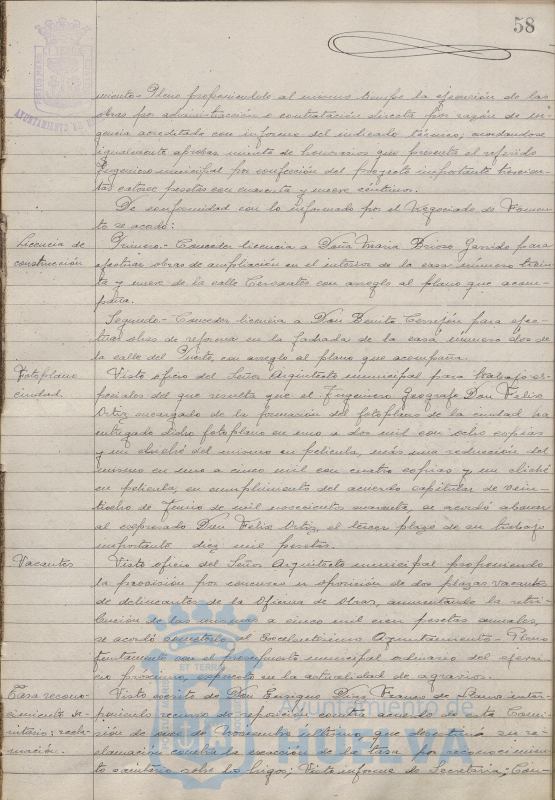 58
miento Pleno proponiéndole al mismo tiempo la ejecución de las
obras por administración o contratación directa por razón de ur-
gencia acreditada con informe del indicado técnico, acordándose
igualmente aprobar minuta de honorarios que presenta el referido
Ingeniero municipal por confección del proyecto importante trescien-
tas catorce pesetas con cuarenta y nueve céntimos.
De conformidad con lo informado por el Negociado de Fomen-
to se acordó:
Licencia de
construcción
Primero.- Conceder licencia a Doña María Brioso Garrido para
efectuar obras de ampliación en el interior de la casa número trein-
ta y nueve de la calle Cervantes con arreglo al plano que acom-
paña.
Segundo.- Conceder licencia a Don Benito Cerrejón para efec-
tuar obras de reforma en la fachada de la casa número dos de
la calle del Puerto, con arreglo al plano que acompaña.
Fotoplano
ciudad.
Visto oficio del Señor Arquitecto municipal para trabajos es-
peciales del que resulta que el Ingeniero Geógrafo Don Felix
Ortiz encargado de la formación del fotoplano de la ciudad ha
entregado dicho fotoplano en uno a dos mil con ocho copias
y un cliché del mismo en película, más una reducción del
mismo en uno a cinco mil con cuatro copias y un cliché
en película, en cumplimiento del acuerdo capitular de vein-
tiocho de Junio de mil novecientos cuarenta, se acordó abonar
al expresado Don Felix Ortiz, el tercer plazo de su trabajo
importante diez mil pesetas.
Vacantes
Visto oficio del Señor Arquitecto municipal proponiendo
la provisión por concurso u oposición de dos plazas vacantes
de delineantes de la Oficina de Obras, aumentando la retri-
bución de las mismas a cinco mil cien pesetas anuales,
se acordó someterlo al Excelentísimo Ayuntamiento Pleno
juntamente con el presupuesto municipal ordinario del ejerci-
cio próximo, expuesto en la actualidad de agravios.
Tasa recono-
cimiento sa-
nitario; recla-
mación.
Visto escrito de Don Enrique Díaz Franco de Llanos inter-
poniendo recurso de reposición contra acuerdo de esta Comi-
sión de de Noviembre último, que desestimó su re-
clamación contra la exacción de la tasa por reconocimien-
to sanitario sobre los higos; Visto informe de Secretaría; Con-
Ayuntamiento de
HUELVA